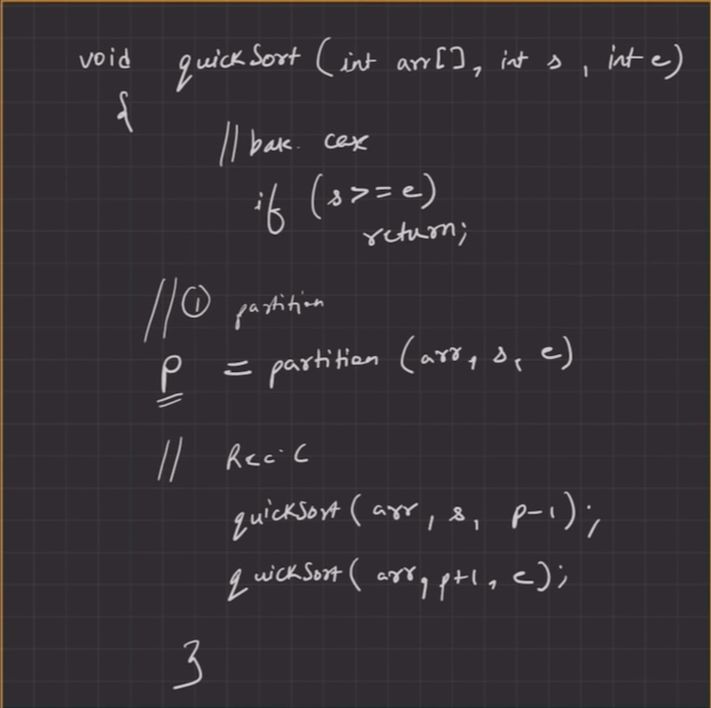 void quickSort (int arr[], int s, int e)
{
// base case
if (s>=e)
return;
//① partition
p = partition (arr, s, e)
// Rec. C
quickSort (arr, s, p-1);
quickSort (arr, p+1, e);
}